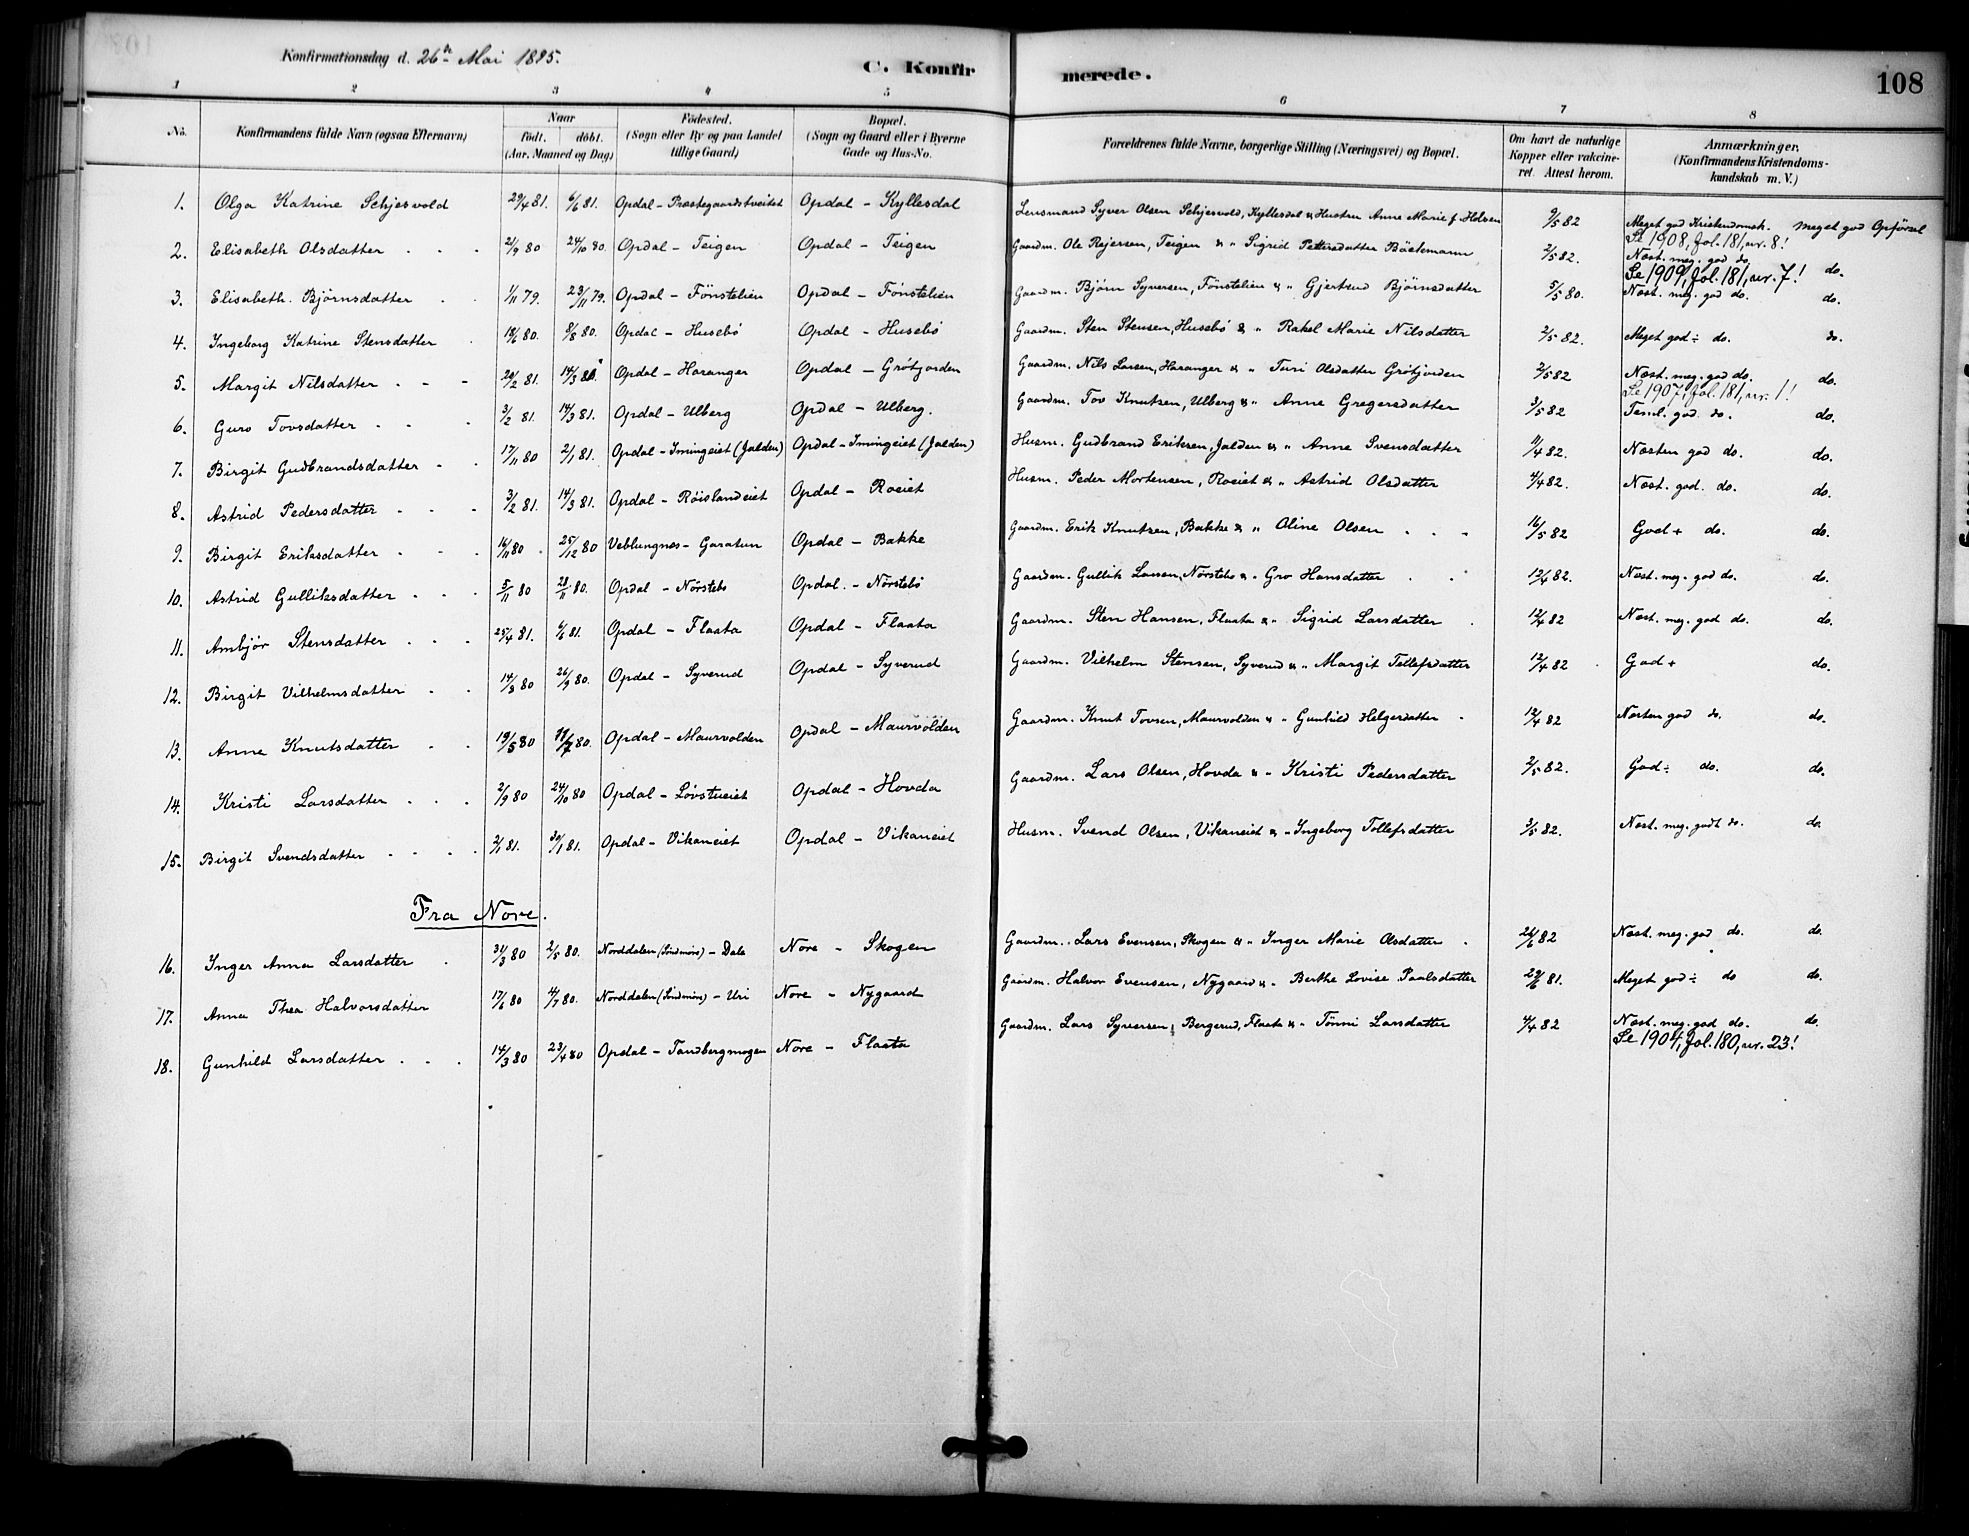 Konfirmationsdag d. 26de Mai 1895.
C. Konfirmerede.
108
1 2 3 4 5 6 7 8
No.
Konfirmandens fulde Navn (ogsaa Efternavn)
Naar
födt. döbt.
(Aar, Maaned og Dag)
Födested.
(Sogn eller By og paa Landet
tillige Gaard)
Bopæl.
(Sogn og Gaard eller i Byerne
Gade og Hus-No.
Forældrenes fulde Navne, borgerlige Stilling (Næringsvei) og Bopæl.
Om havt de naturlige
Kopper eller vakcine-
ret. Attest herom.
Anmærkninger.
(Konfirmandens Kristendoms-
kundskab m. V.)
1. Olga Katrine Schjesvold 29/4 81. 6/6 81. Opdal - Præstegaardstveitet Opdal - Kyllesdal Lensmand Syver Olsen Schjesvold, Kyllesdal & Hustru Anne Marie f. Holsen 9/5 82 Meget god Kristendomsk. Meget god Opförsel
Se 1908, fol. 181, nr. 8!
2. Elisabeth Olsdatter 2/9 80 24/10 80. Opdal - Teigen Opdal - Teigen Gaardm. Ole Reiersen, Teigen & " Sigrid Pettersdatter 2/5 82. Næst. meg. god do. do.
Se 1909, fol. 181, nr. 7!
3. Elisabeth Björnsdatter 1/11 79. 23/11 79. Opdal - Fönstelien Opdal - Fönstelien Gaardm. Björn Syversen, Fönstelien & " Gjertrud Björnsdatter 5/5 80. Næst. meg. god do. do.
4. Ingeborg Katrine Stensdatter 18/6 80. 8/8 80. Opdal - Husebö Opdal - Husebö Gaardm. Sten Stensen, Husebö & " Rakel Marie Nilsdatter 2/5 82. Meget god ÷ do. do.
5. Margit Nilsdatter 20/2 81. 14/3 81. Opdal - Haranger Opdal - Grötjorden Gaardm. Nils Larsen, Haranger & " Turi Olsdatter Grötjorden 2/5 82 Næst. meg. god do. do.
Se 1907, fol. 181, nr. 1!
6. Guro Tovsdatter 3/2 81. 14/3 81. Opdal - Ulberg Opdal - Ulberg. Gaardm. Tov Knutsen, Ulberg & " Anne Gregersdatter 3/5 82 Teml. god do. do.
7. Birgit Gudbrandsdatter 17/11 80 2/1 81. Opdal - Imingeiet (Jalden) Opdal - Imingeiet (Jalden) Husm. Gudbrand Eriksen, Jalden & " Anne Svensdatter 11/4 82. Næsten god do. do.
8. Astrid Pedersdatter 3/2 81. 14/3 81. Opdal - Röislandeiet Opdal - Roeiet Husm. Peder Mortensen, Roeiet & " Astrid Olsdatter 4/4 82. Næst. god. do. do.
9. Birgit Eriksdatter 16/11 80. 25/12 80 Veblungnes - Garatun Opdal - Bakke Gaardm. Erik Knutsen, Bakke & " Oline Olsen 16/5 82 God + do. do.
10. Astrid Gulliksdatter 5/11 80 28/11 80. Opdal - Nörstebö Opdal. - Nörstebö Gaardm. Gullik Larsen, Nörstebö & " Gro Hansdatter 12/4 82. Næst. meg. god do. do.
11. Ambjör Stensdatter 25/4 81. 6/6 81. Opdal - Flaata Opdal - Flaata Gaardm. Sten Hansen, Flaata & " Sigrid Larsdatter 12/4 82 Næst. meg. god do. do.
12. Birgit Vilhelmsdatter 14/8 80 26/9 80. Opdal - Syverud Opdal - Syverud Gaardm. Vilhelm Stensen, Syverud & " Margit Tollefsdatter 12/4 82 God + do.
13. Anne Knutsdatter 19/5 80 11/7 80. Opdal - Maurvolden Opdal - Maurvolden Gaardm. Knut Tovsen, Maurvolden & " Gunhild Helgesdatter 12/4 82 Næsten god do. do.
14. Kristi Larsdatter 2/9 80 24/10 80 Opdal - Lövstueiet Opdal - Hovda Gaardm. Lars Olsen, Hovda & " Kristi Pedersdatter 2/5 82. God ÷ do. do.
15. Birgit Svendsdatter 2/1 81. 30/1 81. Opdal - Vikaneiet Opdal - Vikaneiet Husm. Svend Olsen, Vikaneiet & " Ingeborg Tollefsdatter 3/5 82. Næst. meg. godt do. do.
Fra Nore.
16. Inger Anna Larsdatter 31/3 80 2/5 80. Norddalen (Söndmöre) - Dale Nore - Skogen Gaardm. Lars Evensen, Skogen & " Inger Marie Olsdatter 24/6 82 Næst. meg. god do. do.
17. Anna Thea Halvorsdatter 17/6 80 4/7 80. Norddalen (Söndmöre) - Uri Nore - Nygaard Gaardm. Halvor Evensen, Nygaard & " Berthe Lovise Paalsdatter 29/6 81. Meget god ÷ do do.
18. Gunhild Larsdatter 14/3 80 23/4 80 Opdal - Tandbergmogen Nore - Flaata Gaardm. Lars Syversen, Bergerud, Flaata & " Tönni Larsdatter 4/4 82 Næst. meg. god do. do.
Se 1904, fol. 180, nr. 23!